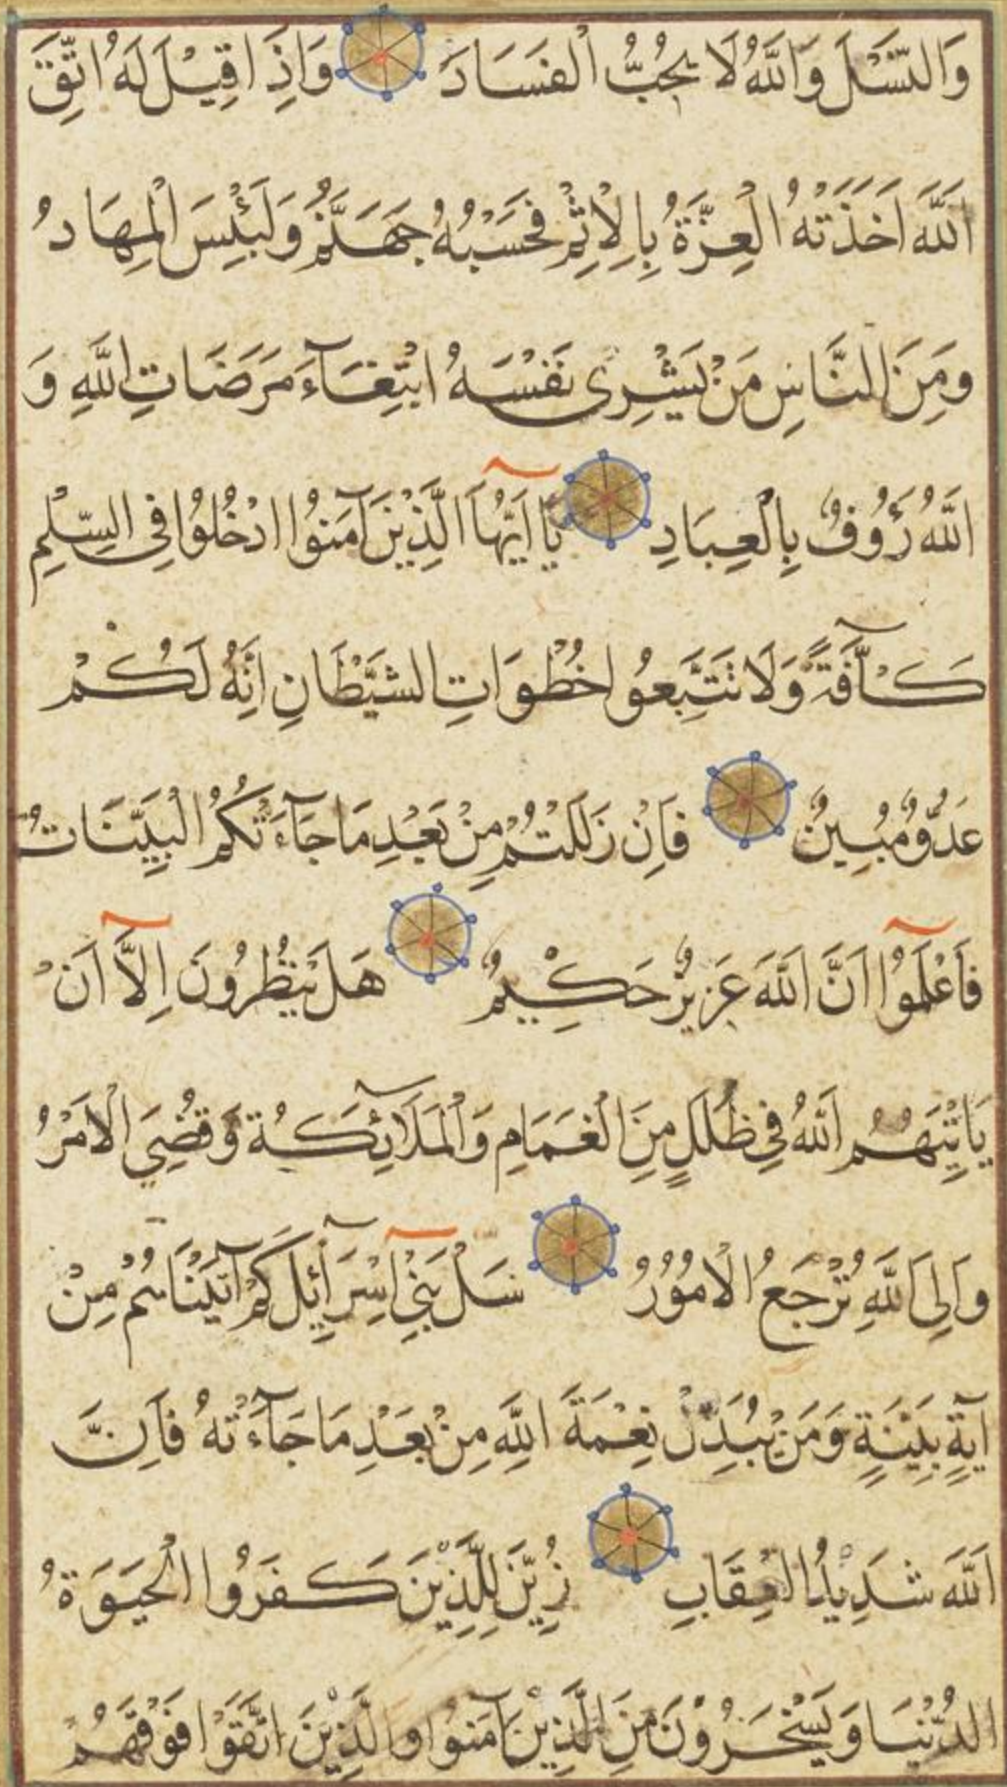 وَالنَّسْلَ وَاللَّهُ لَا يُحِبُّ الْفَسَادَ وَإِذَا قِيْلَ لَهُ اتَّقِ
اللَّهَ اَخَذَتْهُ الْعِزَّةُ بِالْاِثْمِ فَحَسْبُهُ جَهَنَّمُ وَلَبِئْسَ الْمِهَادُ
وَمِنَ النَّاسِ مَنْ يَشْرِى نَفْسَهُ ابْتِغَآءَ مَرَضَاتِ اللَّهِ وَ
اللَّهُ رَؤُوفٌ بِالْعِبَادِ يَآ اَيُّهَا الَّذِيْنَ آمَنُوا ادْخُلُوا فِى السِّلْمِ
كَآفَّةً وَلَا تَتَّبِعُوا خُطُوَاتِ الشَّيْطَانِ اِنَّهُ لَكُمْ
عَدُوٌّ مُبِينٌ فَاِنْ زَلَلْتُمْ مِنْ بَعْدِ مَا جَآءَتْكُمُ الْبَيِّنَاتُ
فَاعْلَمُوآ اَنَّ اللَّهَ عَزِيزٌ حَكِيمٌ هَلْ يَنْظُرُونَ اِلَّآ اَنْ
يَاْتِيَهُمُ اللَّهُ فِي ظُلَلٍ مِنَ الْغَمَامِ وَالْمَلَآئِكَةُ وَقُضِيَ الْاَمْرُ
وَاِلَى اللَّهِ تُرْجَعُ الْاُمُوْرُ سَلْ بَنِيٓ اِسْرَآئِلَ كَمْ آتَيْنَاهُمْ مِنْ
آيَةٍ بَيِّنَةٍ وَمَنْ يُبَدِّلْ نِعْمَةَ اللَّهِ مِنْ بَعْدِ مَا جَآءَتْهُ فَاِنَّ
اللَّهَ شَدِيْدُ الْعِقَابِ زُيِّنَ لِلَّذِيْنَ كَفَرُوا الْحَيَوةُ
الدُّنْيَا وَيَسْخَرُوْنَ مِنَ الَّذِيْنَ آمَنُوا وَالَّذِيْنَ اتَّقَوْا فَوْقَهُمْ